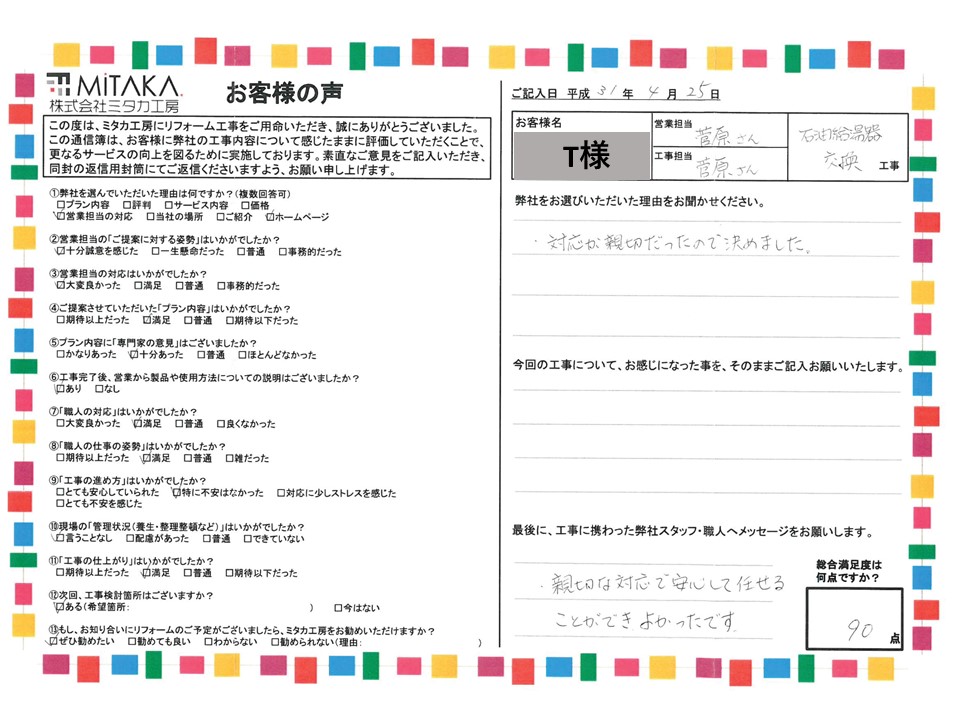 MiTAKA
株式会社ミタカ工房
お客様の声
この度は、ミタカ工房にリフォーム工事をご用命いただき、誠にありがとうございました。
この通信簿は、お客様に弊社の工事内容について感じたままに評価していただくことで、
更なるサービスの向上を図るために実施しております。素直なご意見をご記入いただき、
同封の返信用封筒にてご返信くださいますよう、お願い申し上げます。
①弊社を選んでいただいた理由は何ですか?(複数回答可)
□プラン内容 □評判 □サービス内容 □価格
☑営業担当の対応 □当社の場所 □ご紹介 ☑ホームページ
②営業担当の「ご提案に対する姿勢」はいかがでしたか?
☑十分誠意を感じた □一生懸命だった □普通 □事務的だった
③営業担当の対応はいかがでしたか?
☑大変良かった □満足 □普通 □事務的だった
④ご提案させていただいた「プラン内容」はいかがでしたか?
□期待以上だった ☑満足 □普通 □期待以下だった
⑤プラン内容に「専門家の意見」はございましたか?
□かなりあった ☑十分あった □普通 □ほとんどなかった
⑥工事完了後、営業から製品や使用方法についての説明はございましたか?
☑あり □なし
⑦「職人の対応」はいかがでしたか?
□大変良かった ☑満足 □普通 □良くなかった
⑧「職人の仕事の姿勢」はいかがでしたか?
□期待以上だった ☑満足 □普通 □雑だった
⑨「工事の進め方」はいかがでしたか?
□とても安心していられた ☑特に不安はなかった □対応に少しストレスを感じた
□とても不安を感じた
⑩現場の「管理状況(養生・整理整頓など)」はいかがでしたか?
☑言うことなし □配慮があった □普通 □できていない
⑪「工事の仕上がり」はいかがでしたか?
□期待以上だった ☑満足 □普通 □期待以下だった
⑫次回、工事検討箇所はございますか?
☑ある(希望箇所: ) □今はない
⑬もし、お知り合いにリフォームのご予定がございましたら、ミタカ工房をお勧めいただけますか?
☑ぜひ勧めたい □勧めても良い □わからない □勧められない(理由: )
ご記入日 平成 31 年 4 月 25 日
お客様名
T様
営業担当 菅原さん
工事担当 菅原さん
石油給湯器
交換 工事
弊社をお選びいただいた理由をお聞かせください。
・対応が親切だったので決めました。
今回の工事について、お感じになった事を、そのままご記入お願いいたします。
最後に、工事に携わった弊社スタッフ・職人へメッセージをお願いします。
・親切な対応で安心して任せる
ことができよかったです
総合満足度は
何点ですか?
90 点